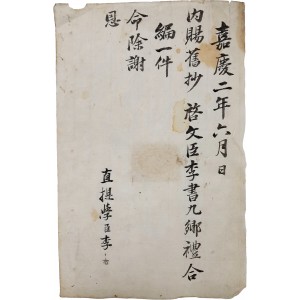 嘉慶二年六月日
內賜舊抄 啓文臣李書九鄉禮合
編一件
命除謝
恩
直提學臣李